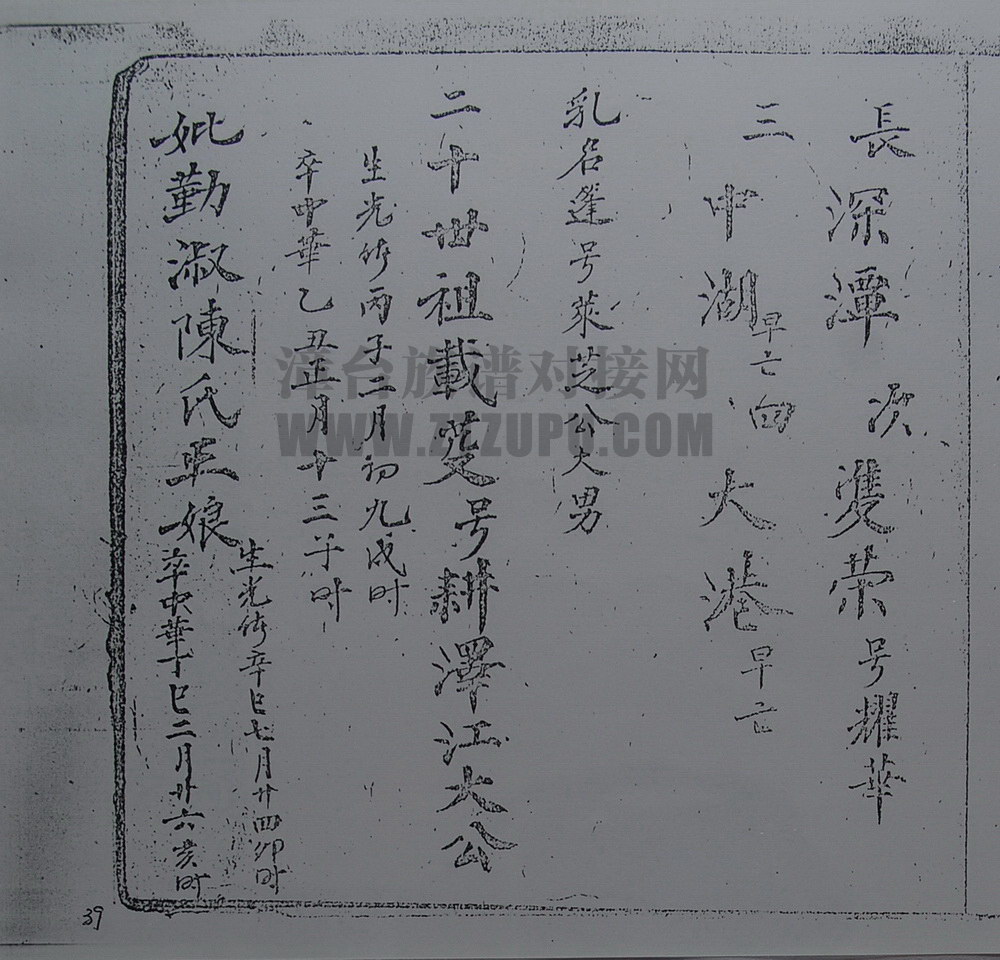 長 深潭 次 雙荣号耀華
三 中湖早亡 四 大港早亡
乳名篷号萊芝公大男
二十世祖載蔆号耕澤江大公
生光绪丙子二月初九戌时
卒中華乙丑正月十三午时
妣勤淑陳氏正娘
生光绪辛巳七月廿四卯时
卒中華丁巳二月廿六亥时
漳台族谱对接网
WWW.ZTZUPU.COM
39